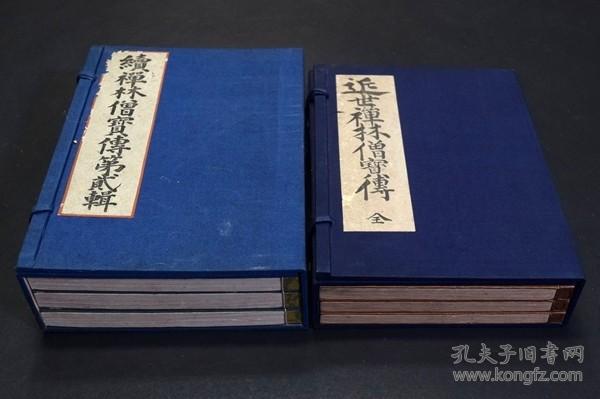 續禪林僧寶傳第貳輯
近世禅林僧寶傳
全
孔夫子旧书网
www.kongfz.com